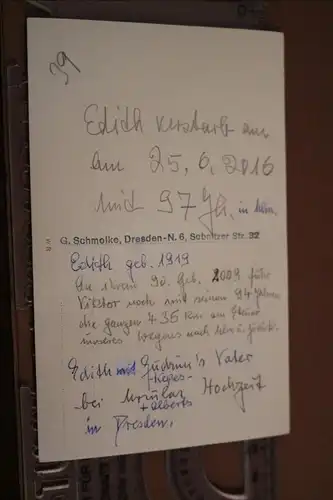 39
Edith verstarb am
am 25.6.2016
mit 97 Jh. in
G. Schmolke, Dresden-N. 6, Sebnitzer Str. 32
Edith geb. 1919
Zu ihrem 90. Geb. 2009 fuhr
Viktor noch mit seinen 94 Jahren
die ganzen 435 km am Steuer
unseres Wagens nach hin u. zurück.
Edith mit Gudrun's Vater
bei Hochzeit
+ Alberts
in Dresden.